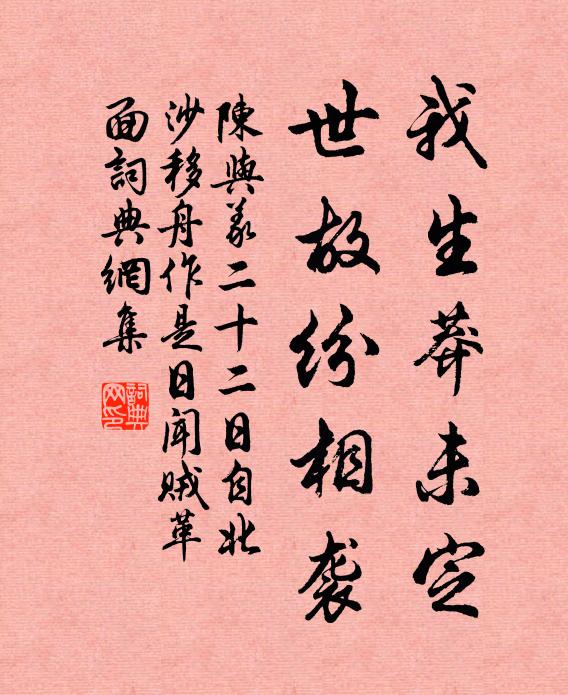 我生莽未定
世故纷相袭
陳與義二十二日自北
沙移舟作是日聞贼革
面詞典網集
詞典
网印